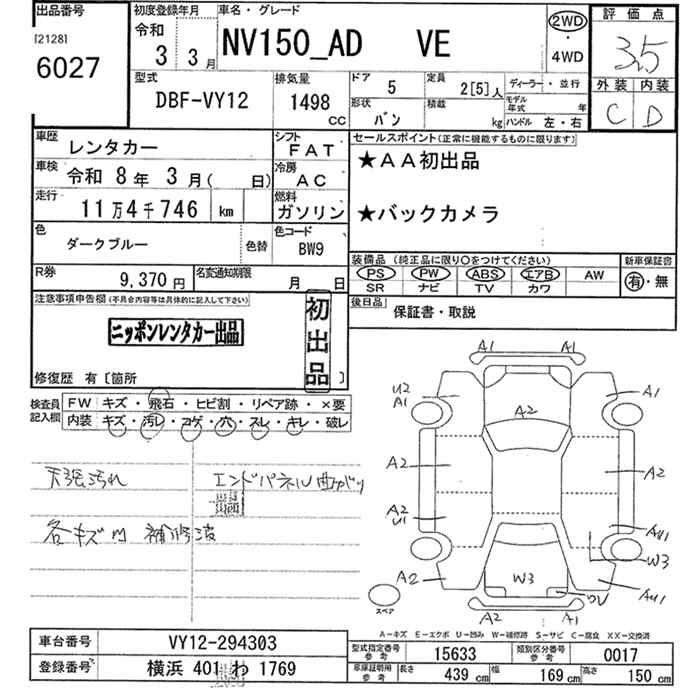 出品番号
[2128]
6027
初度登録年月
令和
3 3月
車名・グレード
NV150_AD VE
2WD
・
4WD
評価点
3.5
外装 内装
C D
型式
DBF-VY12
排気量
1498
CC
ドア 5
形状
バン
定員 2[5]人
積載 kg
ディーラー・並行
モデル年式 年
ハンドル 左・右
車歴 レンタカー
車検 令和 8年 3月( 日)
走行 11万4千746 km
シフト
FAT
冷房
AC
燃料
ガソリン
色
ダークブルー
色替
色コード
BW9
R券 9,370円
名変通知期限 月 日
セールスポイント(正常に機能するものに限ります)
★AA初出品
★バックカメラ
装備品(純正品に限り○をつけてください)
PS PW ABS エアB AW
SR ナビ TV カワ
新車保証書
有・無
後日品
保証書・取説
注意事項申告欄(不具合内容等は具体的に記入して下さい)
ニッポンレンタカー出品
初出品
修復歴 有〔箇所 〕
検査員記入欄
FW キズ・飛石・ヒビ割・リペア跡・×要
内装 キズ・汚レ・コゲ・穴・スレ・キレ・破レ
天張汚れ
エンドパネル曲がり
各キズ凹 補修波
A1 A1
U2
A1
A1
A2
A2
A2
A2
U1
AU1
W3
A2
W3
AU1
A2
A1
スペア
A-キズ E-エクボ U-凹み W-補修跡 S-サビ C-腐食 XX-交換済
車台番号 VY12-294303
登録番号 横浜 401 わ 1769
型式指定番号
参考
15633
類別区分番号
参考
0017
車庫証明用
参考
長さ 439cm
幅 169cm
高さ 150cm